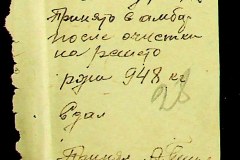 Принято в амбар
после очистки
на решето
ржи 948 кг
28
Сдал
Принял